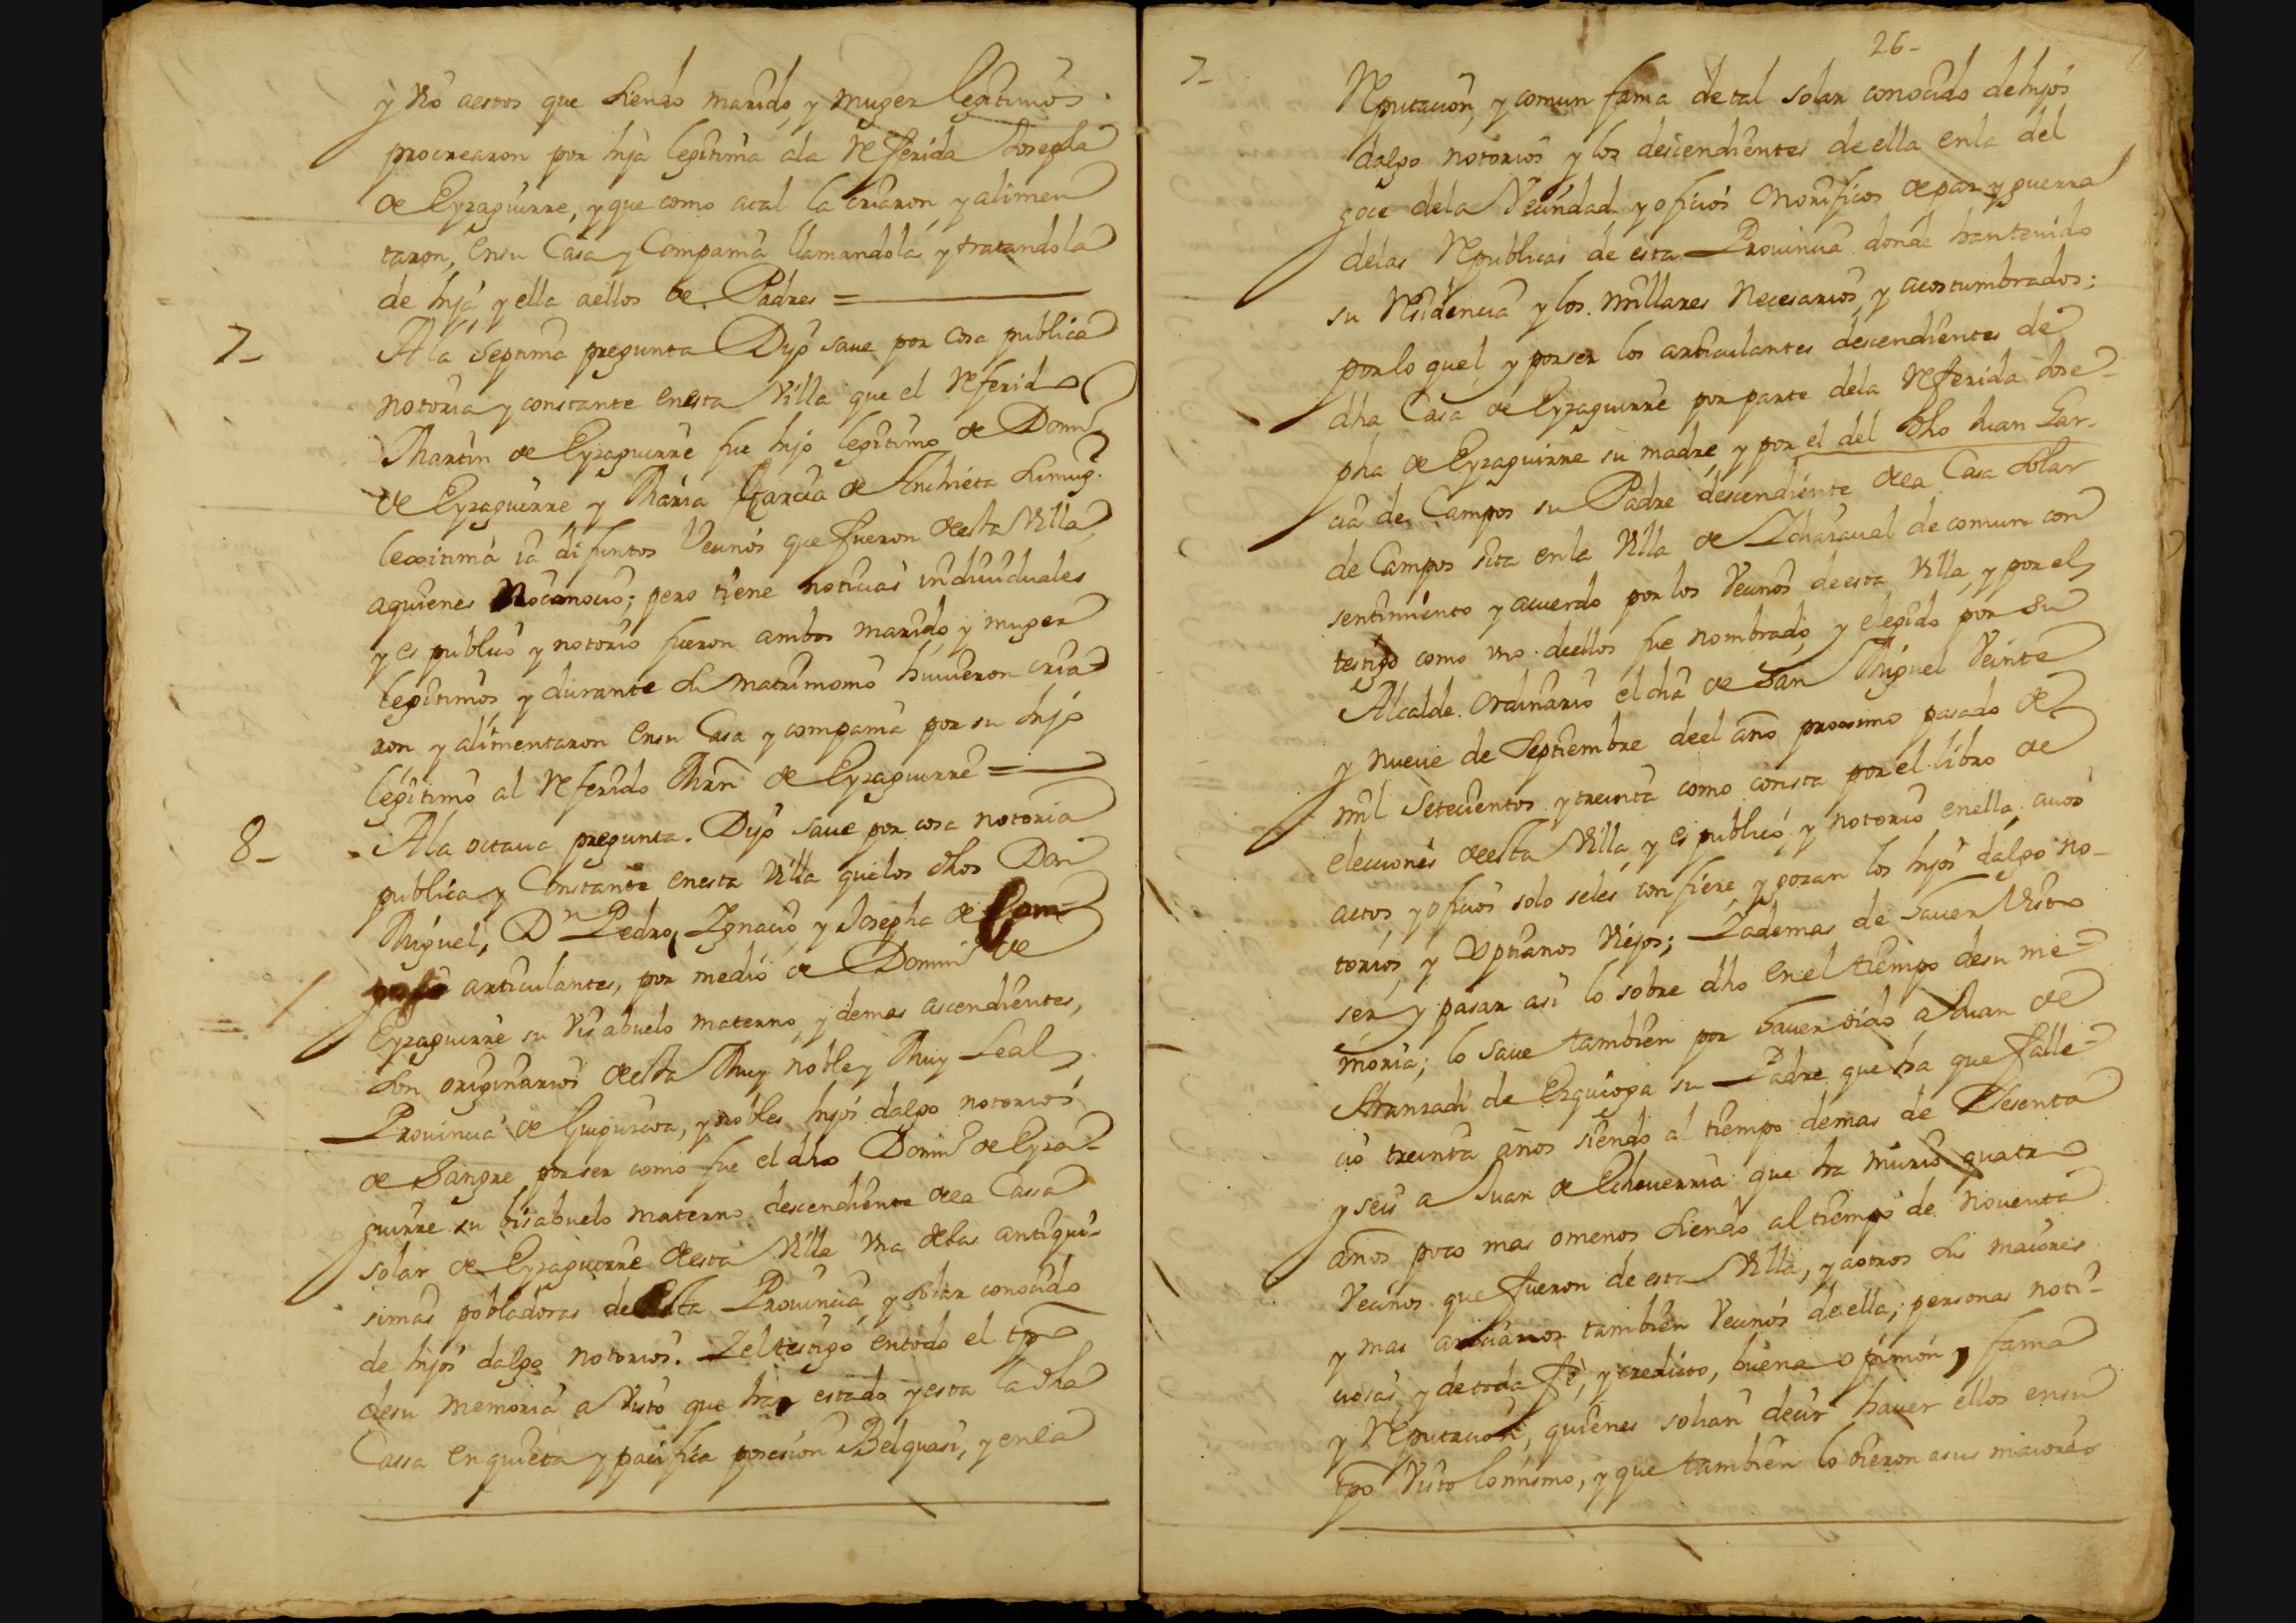 y Vio aestos que siendo marido, y muger legitimos
procrearon por hija legitima ala Referida Josepha
de Eyzaguirre, y que como atal la criaron, y alimen
taron, ensu Casa y Compañia llamandola, y tratandola
de hija y ella aellos de Padres =
7- Ala septima pregunta Dijo saue por cosa publica
notoria y constante enesta Villa que el Referido
Martin de Eyzaguirre fue hijo legitimo de Domin.º
de Eyzaguirre y Maria Garcia de Anchieta su mug.r
lexitima ia difuntos Vecinos que fueron desta Villa,
aquienes no conocio; pero tiene noticias indiuiduales
y es publico y notorio fueron ambos marido, y muger
legitimos y durante su matrimonio huuieron cria=
ron y alimentaron ensu Casa y compañia por su hijo
legitimo al Referido Mrñ de Eyzaguirre =
8- Ala octaua pregunta. Dijo saue por cosa notoria
publica y Constante enesta Villa quelos dhos Don
Miguel, Dn Pedro, Ygnacio y Josepha de Cam=
pos articulantes, por medio de Domin.º de
Eyzaguirre su Visabuelo materno, y demas ascendientes,
son originarios desta Muy noble y Muy Leal
Prouincia de Guipuzcoa, y nobles hijos dalgo notorios
de sangre por ser como fue el dho Domin.º de Eyza=
guirre su bisabuelo materno descendiente dela Cassa
solar de Eyzaguirre desta Villa Vna delas antiqui-
simas pobladoras de esta Prouincia, y solar conocido
de hijos dalgo notorios. Y el testigo entodo el tpo
desu memoria a Visto que ha estado y esta la dha
Cassa en quieta y pacifica posesion Belquasi, y enla
7-
26-
Reputacion, y comun fama detal solar conocido dehijos
dalgo notorios y los descendientes deella enla del
goce dela Vecindad y oficios Onorificos depaz y guerra
delas Republicas de esta Prouincia donde hantenido
su Residencia y los millares Necesarios, y acostumbrados:
porlo quel, y porser los articulantes descendientes de
dha Casa de Eyzaguirre por parte dela Referida Jose-
pha de Eyzaguirre su madre, y por el del dho Juan Gar-
cia de Campos su Padre descendiente dela Casa Solar
de Campos sita enla Villa de Icharaval de comun con
sentimiento y acuerdo por los Vecinos deesta Villa, y por el
testigo como vno deellos fue nombrado, y elegido por su
Alcalde Ordinario el dia de San Miguel Veinte
y nueue de Septiembre deel año proximo pasado de
mil Setecientos y treinta como consta por el libro de
elecciones desta Villa, y es publico, y notorio enella, cuios
actos, y oficios solo seles confiere, y gozan los hijos dalgo no-
torios, y Xptianos Viejos; Y ademas de hauer Visto
ser y pasar asi lo sobre dho en el tiempo desu me=
moria; lo saue tambien por hauer oido a Juan de
Aranzadi de Ezquioga su Padre que ha que falle=
cio treinta años siendo al tiempo demas de Sesenta
y seis a Juan de Echeuerria que ha murio quatro
años poco mas omenos siendo al tiempo de Nouenta
Vecinos que fueron de esta Villa, y aotros sus maiores
y mas ancianos tambien Vecinos deella, personas noti-
ciosas, y detoda fe, y credito, buena opinion, y fama
y Reputacion, quienes solian decir hauer ellos ensu
tpo Visto lomismo, y que tambien lo oieron asus maiores